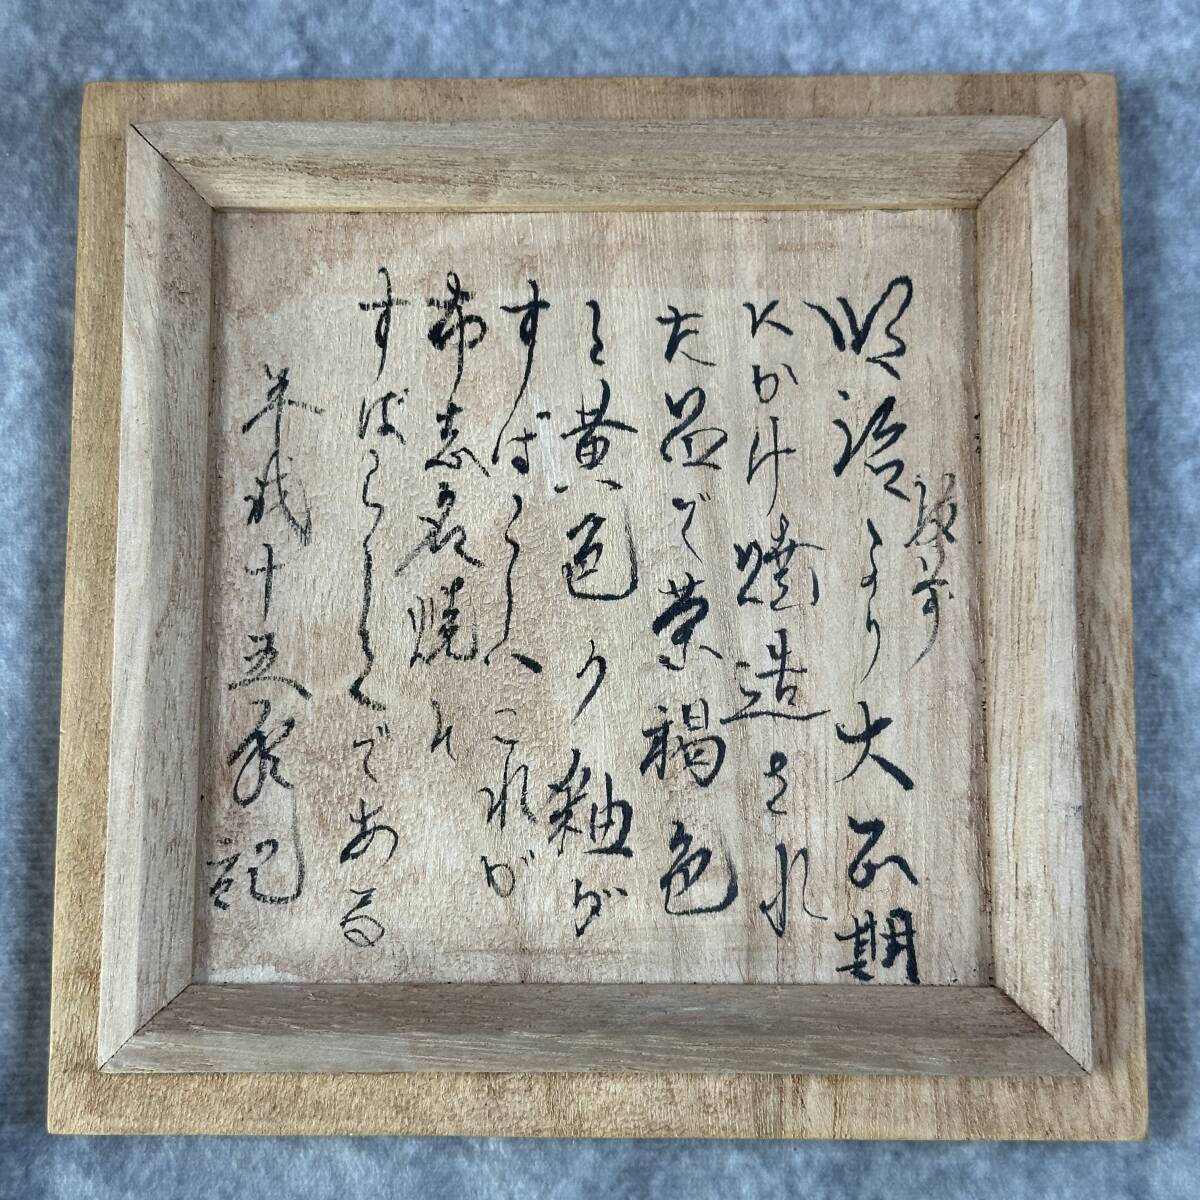 明治より大正期
にかけ焼造され
た品で茶褐色
と黄色の釉が
すばらしいこれが
布志名焼の
すばらしさである
平成十五 記